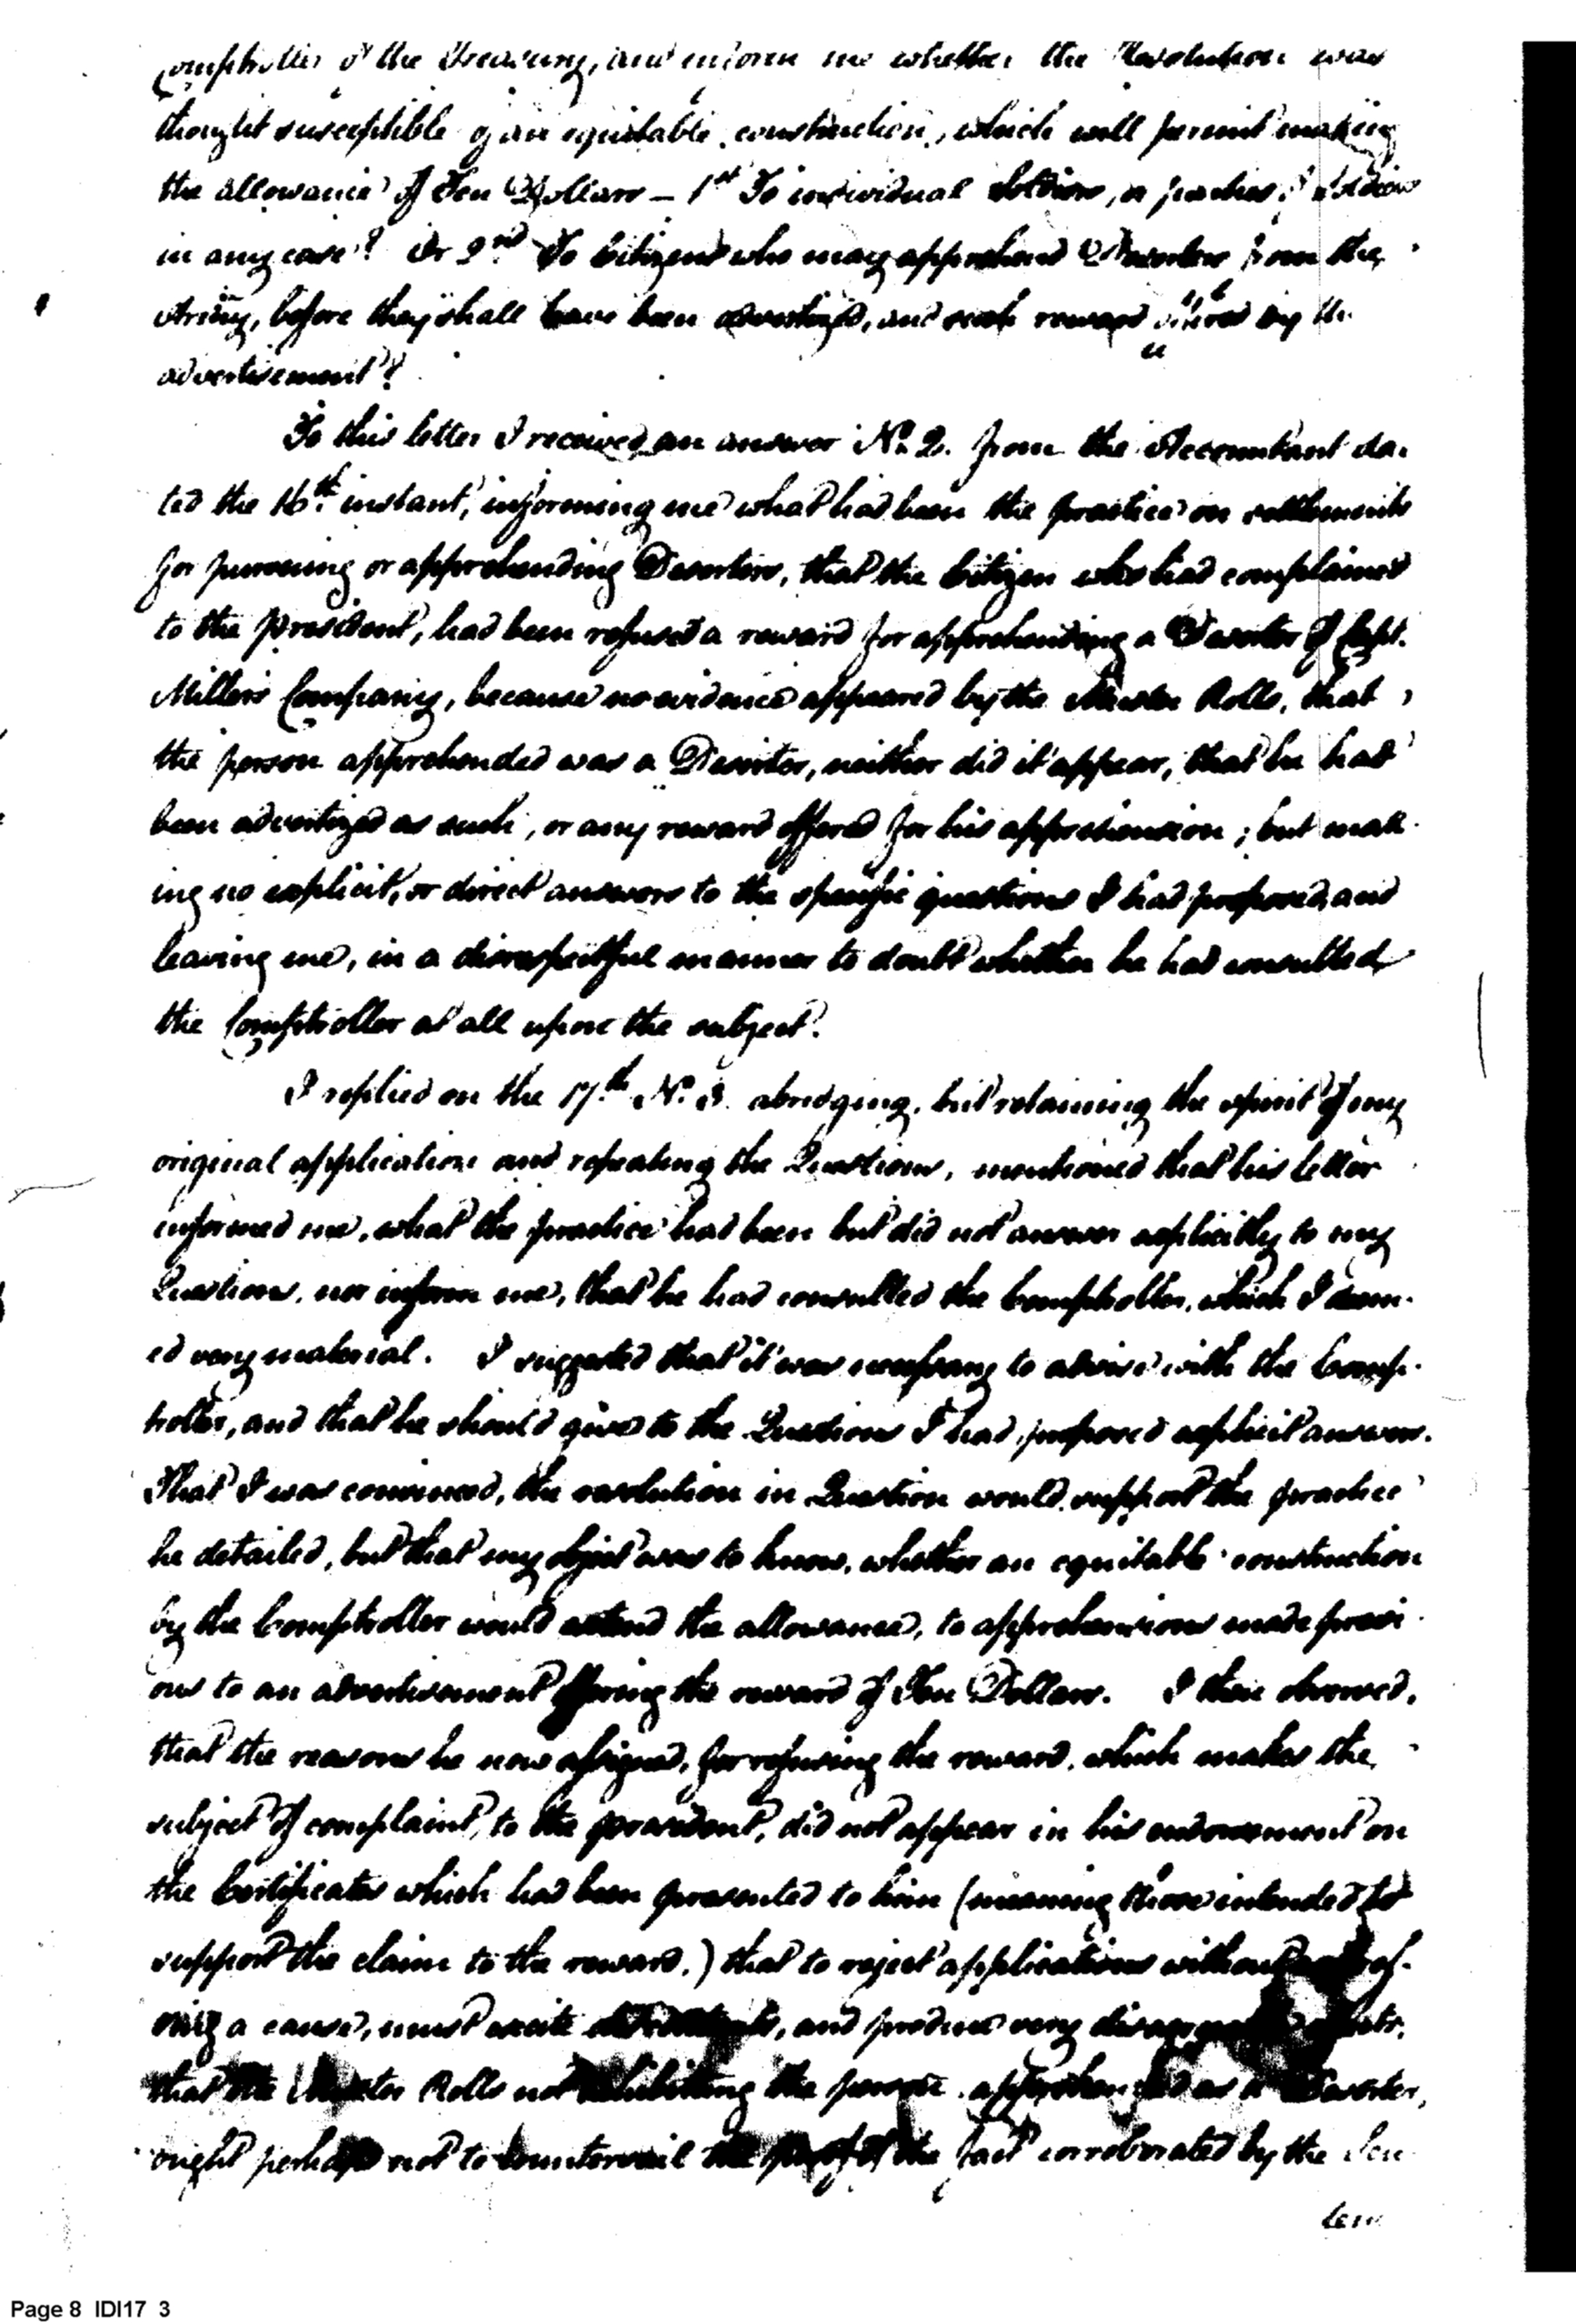 Comptroller of the Treasury, and inform me whether the Resolution was
thought susceptible of an equitable construction, which will permit making
the allowance of Ten Dollars – 1st To individual Soldiers, or parties of Soldiers
in any case? Or 2nd To Citizens who may apprehend Deserters from the
Army, before they shall have been advertized, and such reward offered by the
advertisement?
To this letter I received an answer No. 2. from the Accountant da-
ted the 16th instant, informing me what had been the practice on settlements
for pursuing or apprehending Deserters, that the Citizen who had complained
to the President, had been refused a reward for apprehending a Deserter of Capt.
Millers Company, because no evidence appeared by the Muster Rolls, that
the person apprehended was a Deserter, neither did it appear, that he had
been advertized as such, or any reward offered for his apprehension; but mak-
ing no explicit, or direct answers to the specific questions I had proposed, and
leaving me, in a disrespectful manner to doubt whether he had consulted
the Comptroller at all upon the subject.
I replied on the 17th No. 3. abridging, but retaining the spirit of my
original application and repeating the Questions, mentioned that his letter
informed me, what the practice had been but did not answer explicitly to my
Questions, nor inform me, that he had consulted the Comptroller, which I deem-
ed very material. I suggested that it was necessary to advise with the Comp-
troller, and that he should give to the Questions I had proposed explicit answers.
That I was convinced, the resolution in Question would support the practice
he detailed, but that my object was to know, whether an equitable construction
by the Comptroller would extend the allowance, to apprehensions made previ-
ous to an advertisement offering the reward of Ten Dollars. I then observed,
that the reasons he now assigned, for refusing the reward, which makes the
subject of complaint, to the president, did not appear in his endorsement on
the Certificates which had been presented to him (meaning those intended to
support the claim to the reward.) that to reject applications without
a cause, must excite and produce very disagreeable effects,
that the Muster Rolls not exhibiting the person apprehended as a Deserter,
ought perhaps not to countervail the proof of the fact corroborated by the Sen
Page 8 IDI17 3